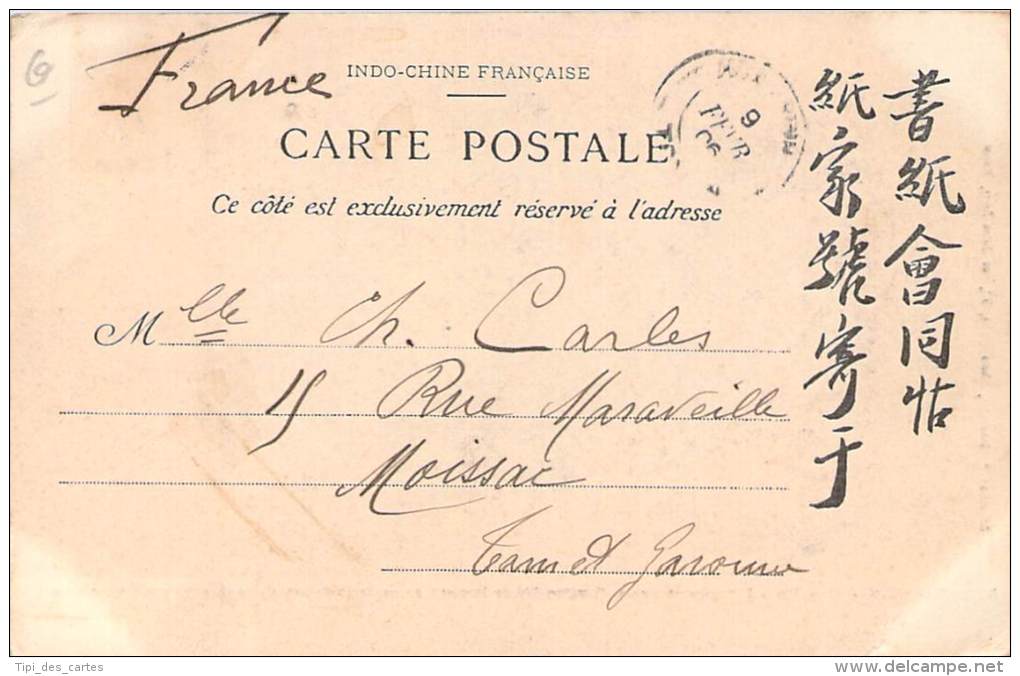 France
INDO-CHINE FRANÇAISE
CARTE POSTALE
Ce côté est exclusivement réservé à l'adresse
9
FEVR
06
Mlle Ch. Carles
15 Rue Maraveille
Moissac
Tarn et Garonne
書紙會同怙
紙家號寄于
Tipi_des_cartes
www.delcampe.net